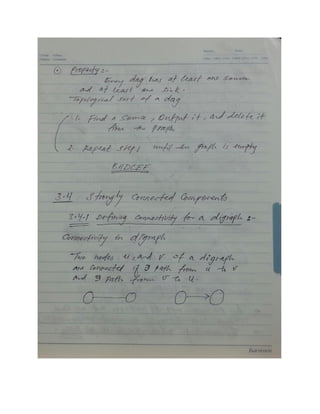 Property :-
Every dag has at least one source
and at least one sink.
Topological sort of a dag
1. Find a source, Output it, and delete it
from the graph
2. Repeat step 1 until the graph is empty
3.4 Strongly Connected Components
3.4.1 Defining connectivity for a digraph :-
Connectivity in digraph
Two nodes u and v of a digraph
are connected if ∃ path from u to v
and ∃ path from v to u.